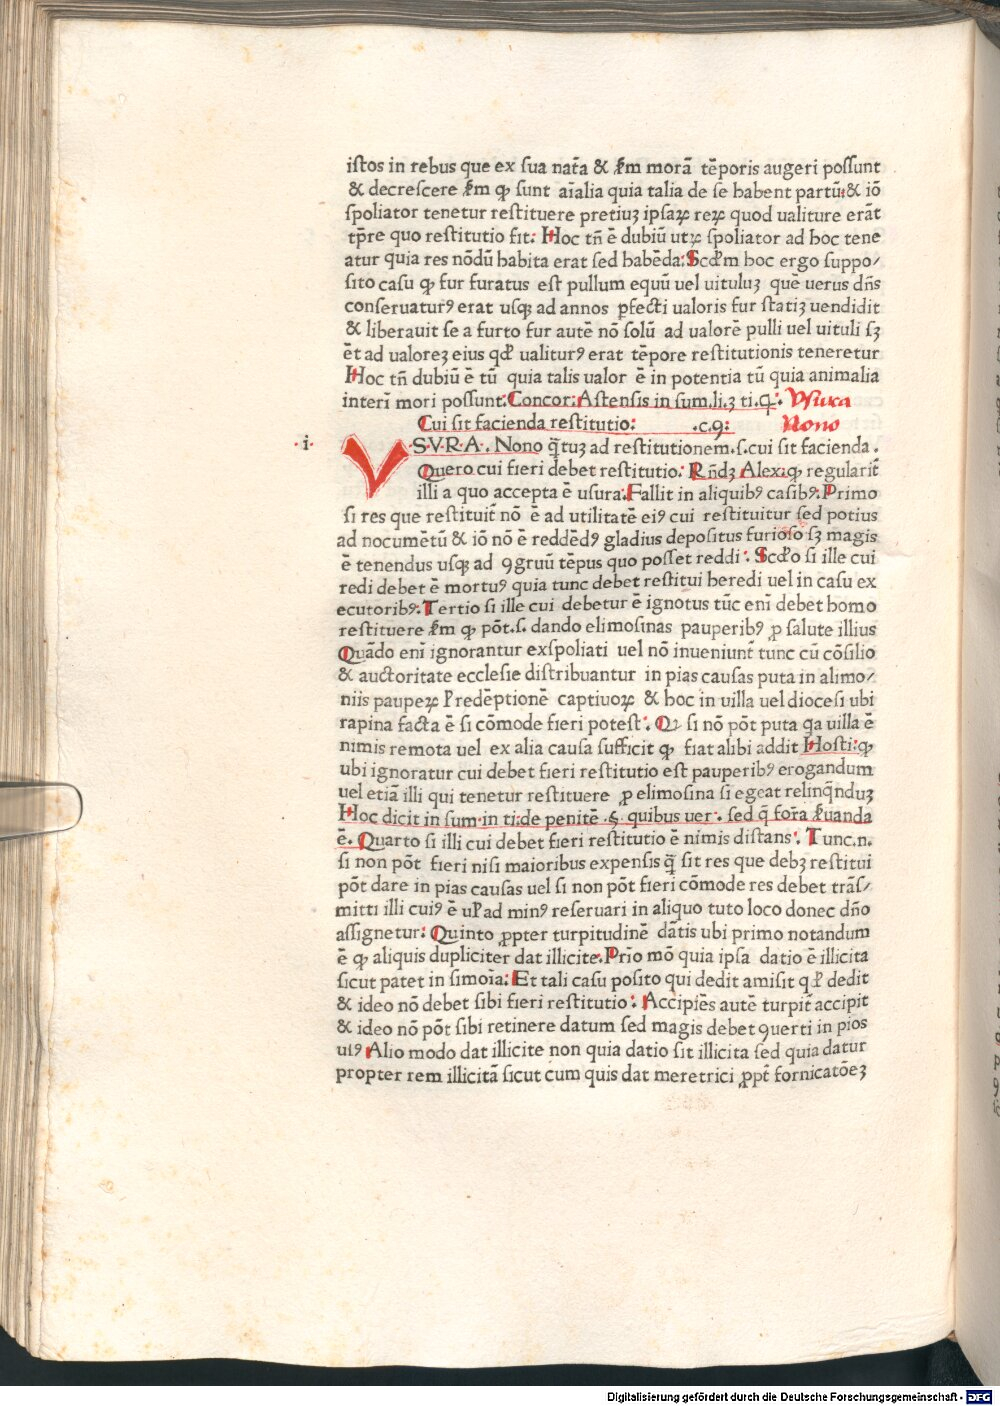 istos in rebus que ex sua nat̄a & s̄m morā tēporis augeri possunt
& decrescere s̄m ꝙ sunt aīalia quia talia de se habent partū: & iō
spoliator tenetur restituere pretiuʒ ipsaꝝ reꝝ quod ualiture erāt
tp̄re quo restitutio fit: Hoc tn̄ ē dubiū utꝝ spoliator ad hoc tene
atur quia res nōdū habita erat sed habēda: Scd̄m hoc ergo suppo/
sito casu ꝙ fur furatus est pullum equū uel uituluʒ quē uerus dn̄s
conseruaturꝰ erat usqꝫ ad annos ꝑfecti ualoris fur statiʒ uendidit
& liberauit se a furto fur autē nō solū ad ualorē pulli uel uituli sʒ
ēt ad ualoreʒ eius qd̄ ualiturꝰ erat tēpore restitutionis teneretur
Hoc tn̄ dubiū ē tū quia talis ualor ē in potentia tū quia animalia
interī mori possunt: Concor: Astensis in sum. li. 3 ti. q̄. Vsura
Cui sit facienda restitutio: .c.9: Nono
.i. VSVRA. Nono q̄tuʒ ad restitutionem .s. cui sit facienda.
Quero cui fieri debet restitutio: Rn̄dʒ Alex. ꝙ regularit̄
illi a quo accepta ē usura: Fallit in aliquibꝰ casibꝰ. Primo
si res que restituit̄ nō ē ad utilitatē eiꝰ cui restituitur sed potius
ad nocumētū & iō nō ē reddēdꝰ gladius depositus furioso sʒ magis
ē tenendus usqꝫ ad ꝯgruū tēpus quo posset reddi: Scd̄o si ille cui
redi debet ē mortuꝰ quia tunc debet restitui heredi uel in casu ex
ecutoribꝰ. Tertio si ille cui debetur ē ignotus tūc enī debet homo
restituere s̄m ꝙ pōt .s. dando elimosinas pauperibꝰ ꝓ salute illius
Quādo enī ignorantur exspoliati uel nō inueniunt̄ tunc cū cōsilio
& auctoritate ecclesie distribuantur in pias causas puta in alimo/
niis paupeꝝ Predēptionē captiuoꝝ & hoc in uilla uel diocesi ubi
rapina facta ē si cōmode fieri potest: Qꝫ si nō pōt puta qa uilla ē
nimis remota uel ex alia causa sufficit ꝙ fiat alibi addit Hosti: ꝙ
ubi ignoratur cui debet fieri restitutio est pauperibꝰ erogandum
uel etiā illi qui tenetur restituere ꝓ elimosina si egeat relinq̄nduʒ
Hoc dicit in sum. in ti: de penitē .§. quibus uer. sed q̄ for̄a s̄uanda
ē. Quarto si illi cui debet fieri restitutio ē nimis distans: Tunc .n.
si non pōt fieri nisi maioribus expensis q̄ sit res que debʒ restitui
pōt dare in pias causas uel si non pōt fieri cōmode res debet trās/
mitti illi cuiꝰ ē uł ad minꝰ reseruari in aliquo tuto loco donec dn̄o
assignetur: Quinto ꝓpter turpitudinē dātis ubi primo notandum
ē ꝙ aliquis dupliciter dat illicite. Prīo mō quia ipsa datio ē illicita
sicut patet in simoīa: Et tali casu posito qui dedit amisit qd̄ dedit
& ideo nō debet sibi fieri restitutio: Accipiēs autē turpit̄ accipit
& ideo nō pōt sibi retinere datum sed magis debet ꝯuerti in pios
usꝰ Alio modo dat illicite non quia datio sit illicita sed quia datur
propter rem illicitā sicut cum quis dat meretrici ꝓpt̄ fornicatōeʒ
Digitalisierung gefördert durch die Deutsche Forschungsgemeinschaft - DFG